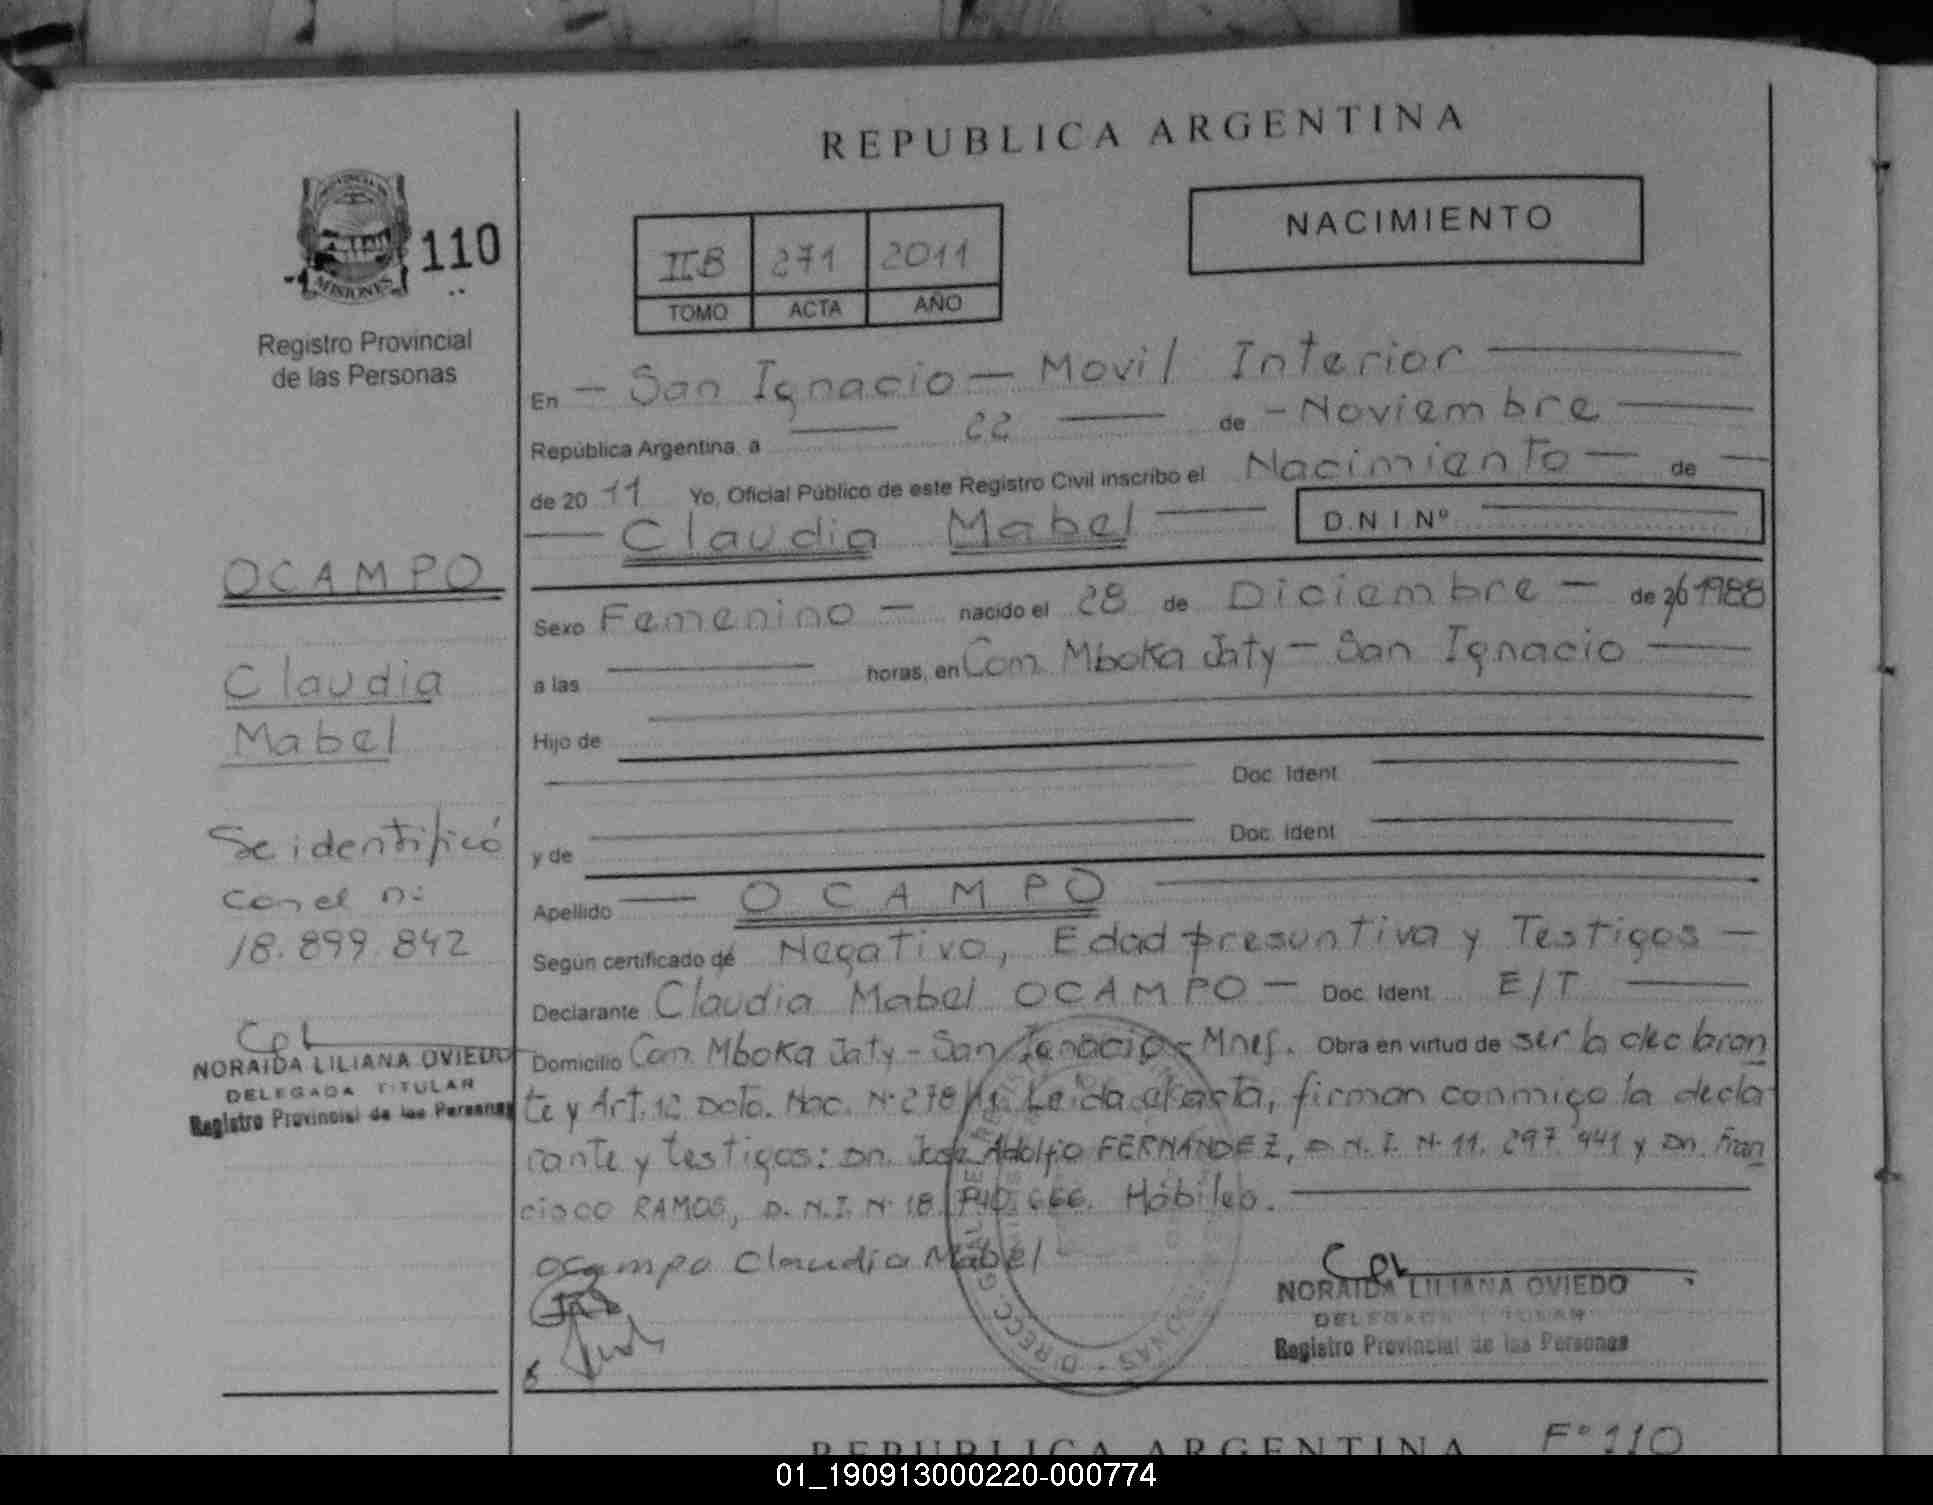 REPUBLICA ARGENTINA
NACIMIENTO
PROVINCIA DE
MISIONES
110
Registro Provincial
de las Personas
IIB 271 2011
TOMO ACTA AÑO
En — San Ignacio — Movil Interior
República Argentina, a 22 de - Noviembre
de 2011 Yo, Oficial Público de este Registro Civil inscribo el Nacimiento — de
Claudia Mabel D.N.I.Nº
Sexo Femenino — nacido el 28 de Diciembre — de 20 1988
a las horas, en Com. Mboka Jaty — San Ignacio
Hijo de
Doc. Ident.
y de Doc. Ident.
Apellido OCAMPO
Según certificado de Negativo, Edad presuntiva y Testigos —
Declarante Claudia Mabel OCAMPO — Doc. Ident. E/T
Domicilio Com. Mboka Jaty - San Ignacio - Mnes. Obra en virtud de ser la declaran
te y Art. 12 Dcto. Nac. Nº 278/ Leida el acta, firman conmigo la decla
rante y testigos: Dn. José Adolfo FERNANDEZ, D.N.I. Nº 11.297.941 y Dn. Fran
cisco RAMOS, D.N.I. Nº 18. 666. Hábiles.
Ocampo Claudia Mabel
NORAIDA LILIANA OVIEDO
DELEGADA TITULAR
Registro Provincial de las Personas
OCAMPO
Claudia
Mabel
Se identificó
con el nº
18.899.842
NORAIDA LILIANA OVIEDO
DELEGADA TITULAR
Registro Provincial de las Personas
REPUBLICA ARGENTINA Fº 110
01_190913000220-000774